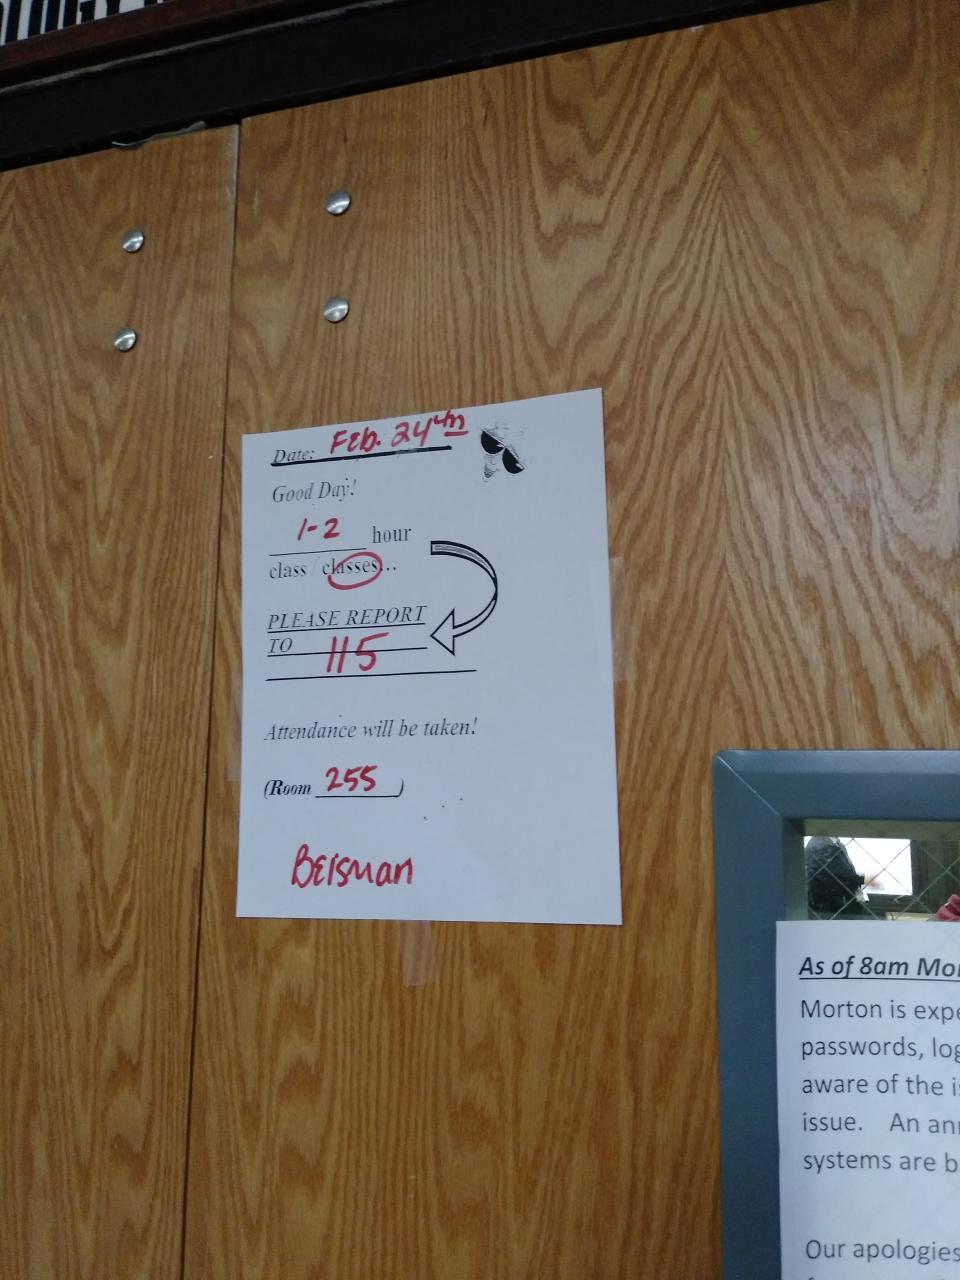 Date: Feb. 24th
Good Day!
1-2 hour
class / classes...
PLEASE REPORT
TO 115
Attendance will be taken!
(Room 255)
Beisman
As of 8am Mo
Morton is expe
passwords, log
aware of the i
issue. An an
systems are b
Our apologies